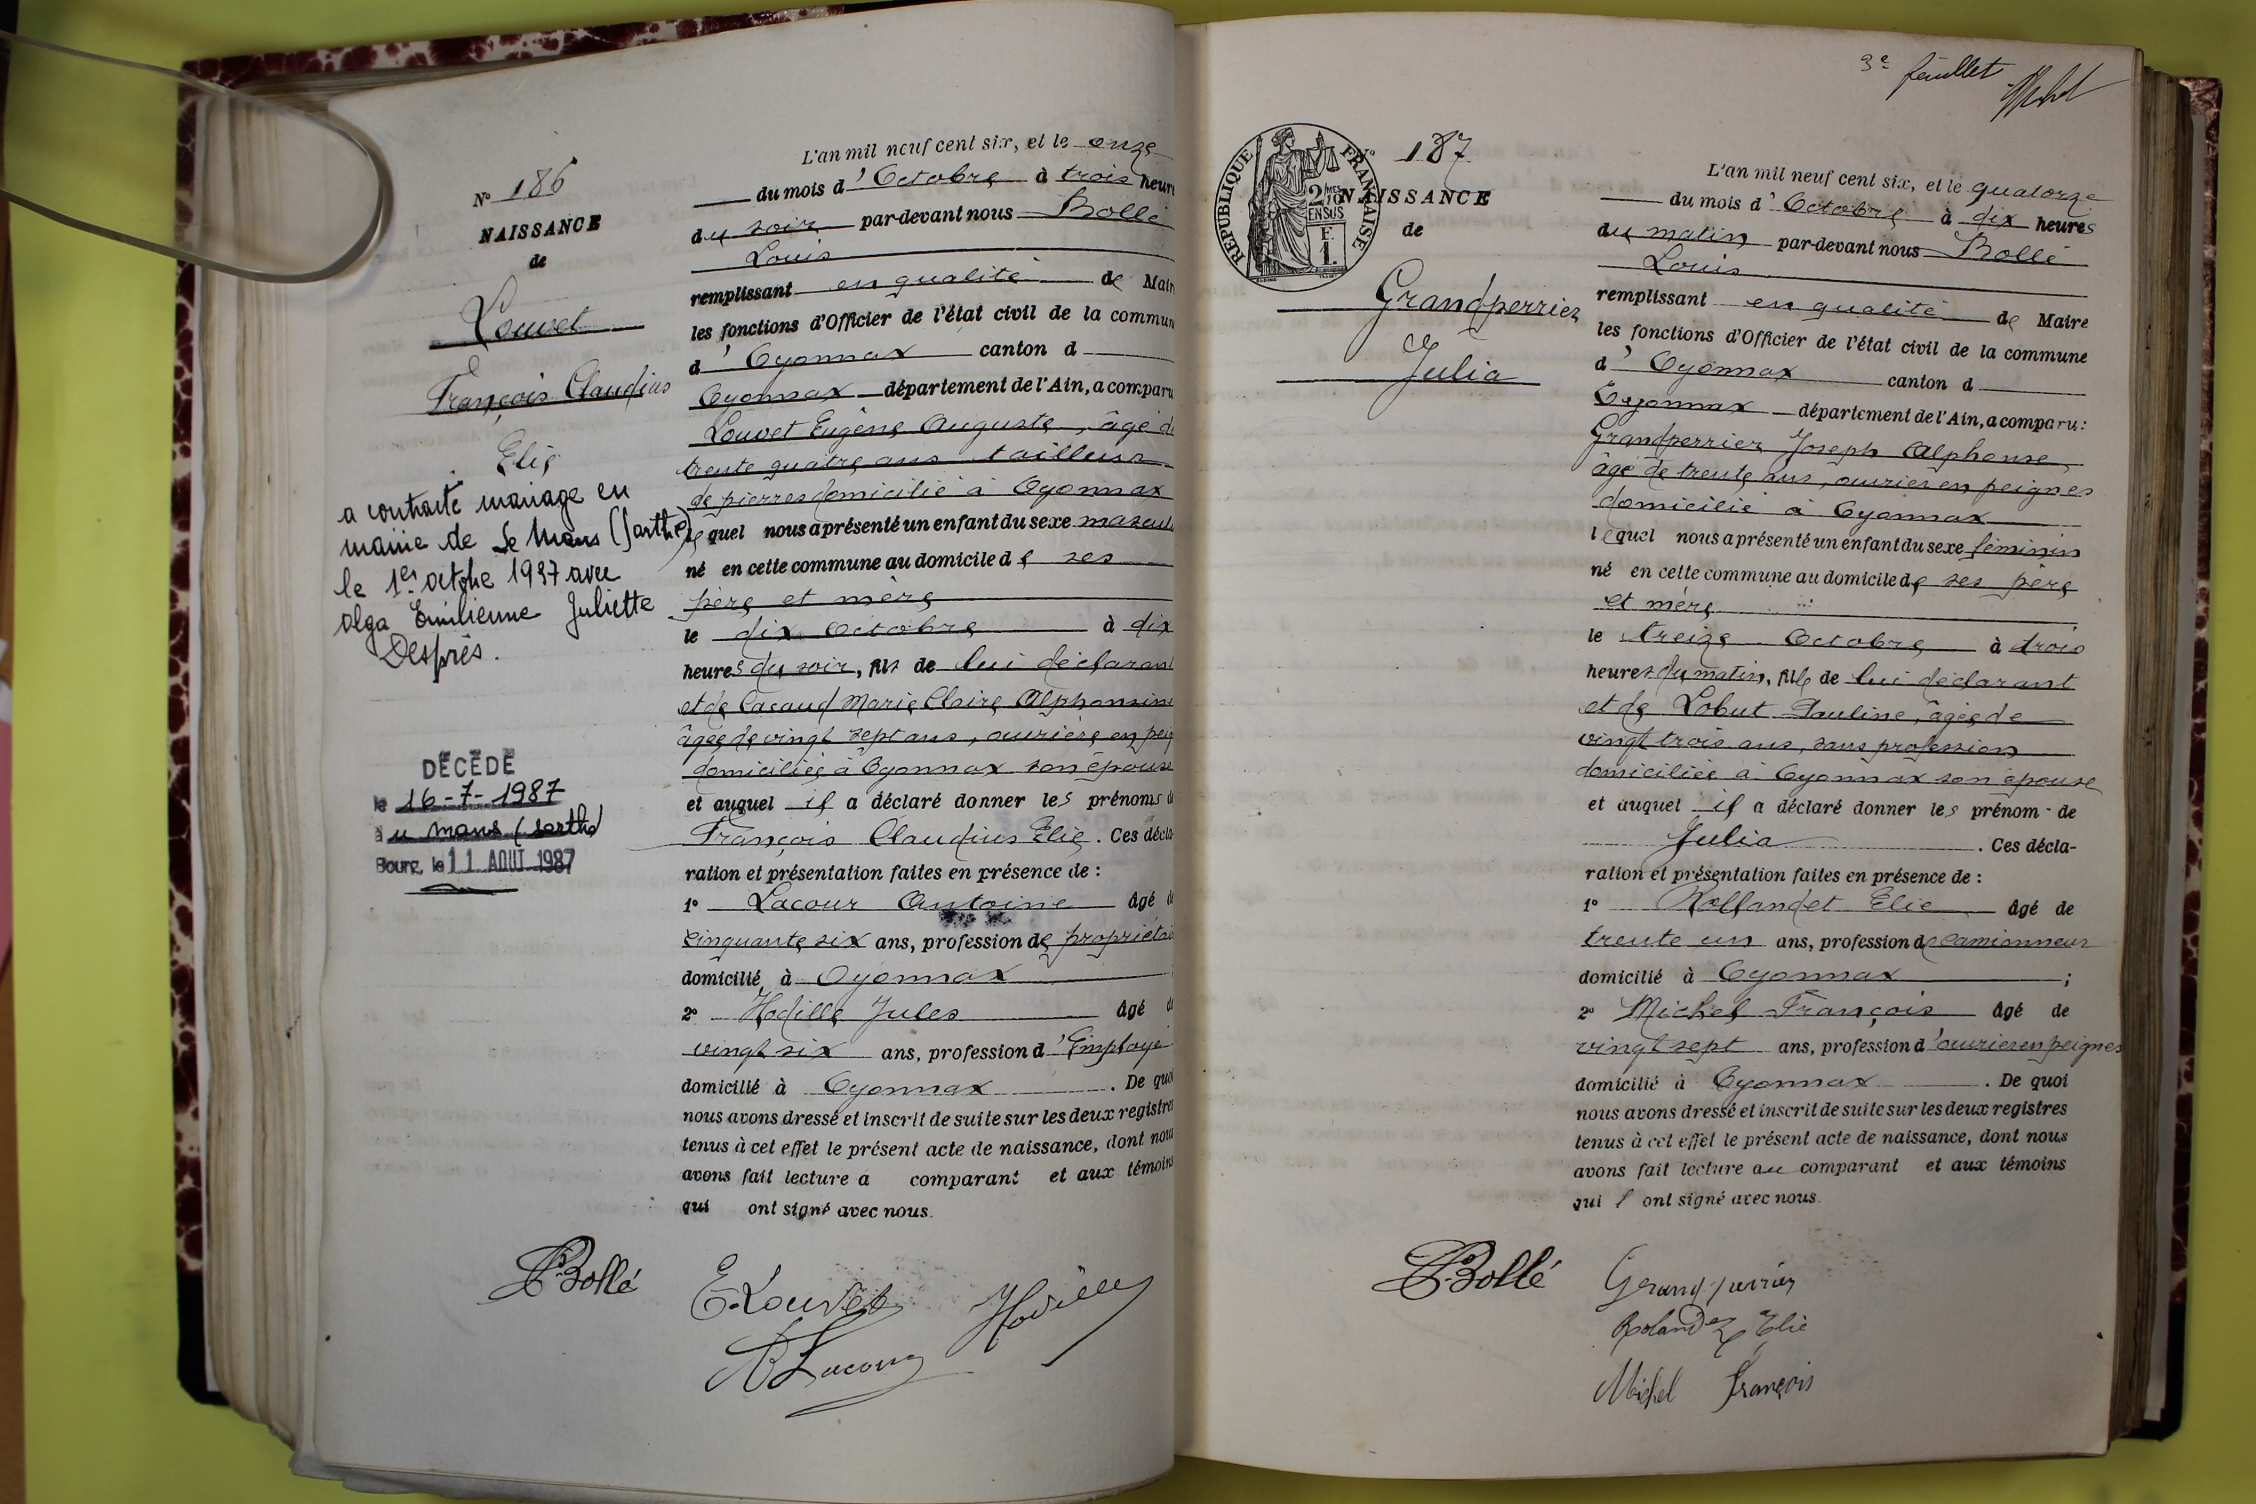 Nº 186
NAISSANCE
de
Louvet
François Claudius
Elie
a contracté mariage en
mairie de Le Mans (Sarthe)
le 1er octobre 1937 avec
Olga Emilienne Juliette
Desprès.
DÉCÉDÉ
le 16-7-1987
à u mans (sarthe)
Bourg, le 11 AOUT 1987
L'an mil neuf cent six, et le onze
du mois d'Octobre à trois heure
du soir par-devant nous Bollé
Louis
remplissant en qualité de Mair
les fonctions d'Officier de l'état civil de la commun
d'Oyonnax canton d
Oyonnax département de l'Ain, a comparu
Louvet Eugène Auguste, âgé de
trente quatre ans tailleur
de pierres domicilié à Oyonnax
lequel nous a présenté un enfant du sexe mascul
né en cette commune au domicile de ses
père et mère
le dix Octobre à dix
heures du soir, fils de lui déclarant
et de Casaud Marie Claire Alphonsine
âgée de vingt sept ans, ouvrière en peig
domiciliée à Oyonnax son épouse
et auquel il a déclaré donner les prénoms d
François Claudius Elie. Ces décla
ration et présentation faites en présence de :
1º Lacour Antoine âgé d
cinquante six ans, profession de propriétai
domicilié à Oyonnax
2º Hodille Jules âgé d
vingt six ans, profession d'Employé
domicilié à Oyonnax. De quoi
nous avons dressé et inscrit de suite sur les deux registres
tenus à cet effet le présent acte de naissance, dont nous
avons fait lecture a comparant et aux témoins
qui ont signé avec nous.
LBollé
E. Louvet Hodille
A Lacour
3e feuillet
RÉPUBLIQUE FRANÇAISE
Nº 187
NAISSANCE
de
Grandperrier
Julia
L'an mil neuf cent six, et le quatorze
du mois d'Octobre à dix heures
du matin par-devant nous Bollé
Louis
remplissant en qualité de Maire
les fonctions d'Officier de l'état civil de la commune
d'Oyonnax canton d
Oyonnax département de l'Ain, a comparu :
Grandperrier Joseph Alphonse,
âgé de trente ans, ouvrier en peignes
domicilié à Oyonnax
lequel nous a présenté un enfant du sexe féminin
né en cette commune au domicile de ses père
et mère
le treize Octobre à trois
heures du matin, fille de lui déclarant
et de Lobut Pauline, âgée de
vingt trois ans, sans profession
domiciliée à Oyonnax son épouse
et auquel il a déclaré donner les prénom - de
Julia. Ces décla-
ration et présentation faites en présence de :
1º Rollandet Elie âgé de
trente un ans, profession de camionneur
domicilié à Oyonnax ;
2º Michel François âgé de
vingt sept ans, profession d'ouvrier en peignes
domicilié à Oyonnax. De quoi
nous avons dressé et inscrit de suite sur les deux registres
tenus à cet effet le présent acte de naissance, dont nous
avons fait lecture au comparant et aux témoins
qui l ont signé avec nous.
LBollé
Grandperrier
Rolandez Elie
Michel François